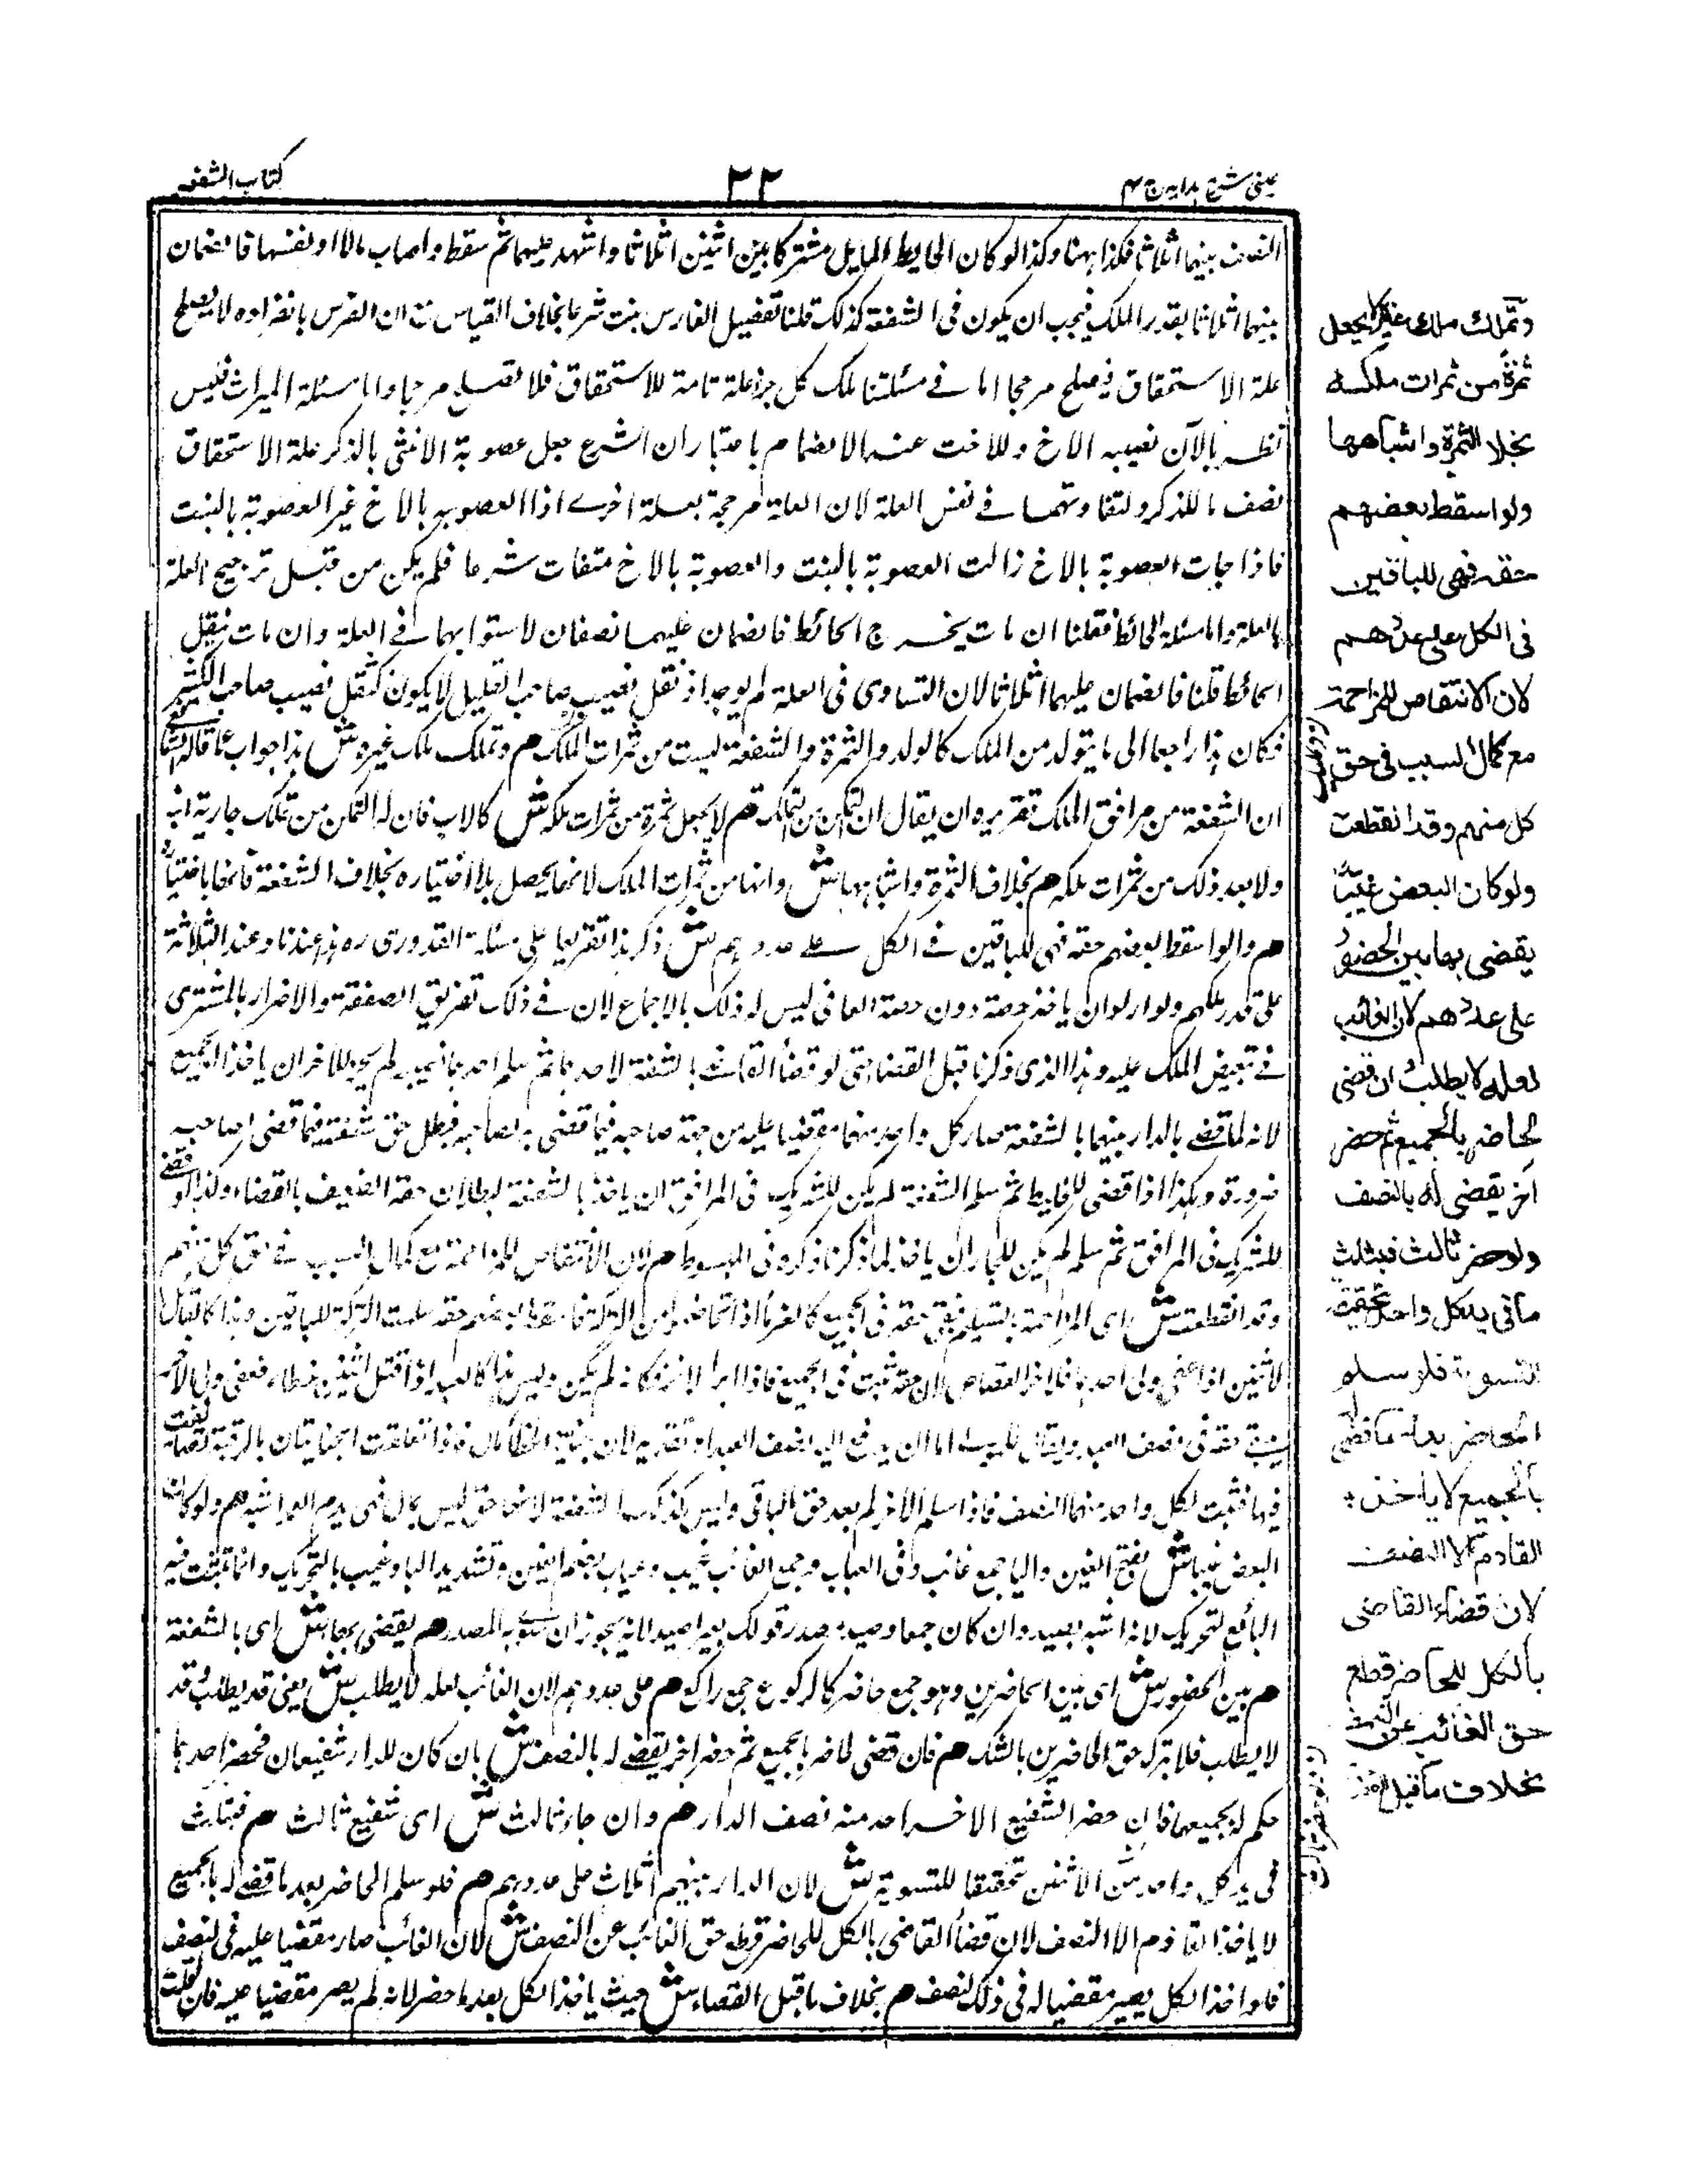 عینی شرح ہدایہ ج ۴
۲۲
کتاب الشفعہ
بينهما اثلاثا فكذا ههنا وكذا لو كان الحايط المايل مشتركا بين اثنين اثلاثا واشهد عليهما ثم سقط واصاب مالا او نفسا فالضمان
بينهما اثلاثا بقدر الملك فيجب ان يكون فى الشفعة كذلك قلنا تفضيل الفارس ثبت شرعا بخلاف القياس ان الفرس بانفراده لا يصلح
علة الاستحقاق فيصلح مرجحا اما فى مسئلتنا ملك كل جزء علة تامة للاستحقاق فلا تصلح مرجحا واما مسئلة الميراث فليس
نصيب الاخ وللاخت عند الانضمام باعتبار ان الشرع جعل عصوبة الانثى بالذكر علة الاستحقاق
نصف ما للذكر فى نفس العلة لان العلة مرجحة بعلة اخرى اذا العصوبة بالاخ غير العصوبة بالبنت
فاذا جات العصوبة بالاخ زالت العصوبة بالبنت والعصوبة بالاخ شرعا فلم يكن من قبل ترجيح العلة
بالعلة واما مسئلة الحائط فقلنا ان مات الحائط فالضمان عليهما نصفان لاستوايهما فى العلة وان مات بنقل
الحائط قلنا فالضمان عليهما اثلاثا لان التساوى فى العلة لم يوجد اذ نقل نصيب صاحب القليل لا يكون كثقل نصيب صاحب الكثير
فكان هذا راجعا الى ما يتولد من الملك كالولد والثمرة والشفعة ليست من ثمرات الملك هم وتملك ملك غيره ش هذا جواب عما قاله الشافعى
ان الشفعة من مرافق الملك تقريره ان يقال ان التمكن من التملك هم لا يجعل ثمرة من ثمرات ملكه ش كالاب فان له التمكن من تملك جارية ابنه
ولا يعد ذلك من ثمرات ملكه هم بخلاف الثمرة واشباهها ش وانها من ثمرات الملك لانها يحصل بلا اختياره بخلاف الشفعة فانها باختياره
هم ولو اسقط بعضهم حقه فهى للباقين فى الكل على عددهم ش ذكر هذا تفريعا على مسئلة القدورى ره هذا عندنا وعند الثلاثة
على قدر ملكهم ولو ان ياخذ حصته دون حصة العافى ليس له ذلك بالاجماع لان فى ذلك تفريق الصفقة والاضرار بالمشترى
فى تبعيض الملك عليه وهذا الذى ذكرنا قبل القضاء حتى لو قضى القاضى بالشفعة لاحدهما ثم سلم احدهما نصيبه لم يجز للآخر ان ياخذ الجميع
لانه لما قضى بالدار بينهما بالشفعة صار كل واحد منهما مقضيا عليه من جهة صاحبه فيما قضى به لصاحبه فبطل حق شفعته فيما قضى لصاحبه
ضرورة وهكذا اذا قضى للخليط ثم سلم الشفعة لم يكن للشريك فى المرافق ان ياخذ بالشفعة لبطلان حقه الضعيف بالقضاء وكذا لو قضى
للشريك فى المرافق ثم سلم لم يكن للجار ان ياخذ لما ذكرنا ذكره فى المبسوط هم لان الانتقاص للمزاحمة مع كمال السبب فى حق كل منهم
وقد انقطعت ش اى المزاحمة بالتسليم فبقى حقه فى الجميع حقه سلمت التركة للباقين وهذا كالقصاص
لاثنين اذا عفى ولى احدهما القصاص لان حقه ثبت فى الجميع فاذا لم يكن وليس هذا كالعبد اذا قتل اثنين خطاء فعفى ولى الآخر
حقه فى نصف العبد ويقال للمولى اما ان يدفع اليه نصف العبد او تفديه لان جناية الخطأ مال فاذا تعلقت الجنايتان بالرقبة
فيها فثبت لكل واحد منهما النصف فاذا سلم الآخر لم يعد حق الباقى وليس كذلك الشفعة لانها حق ليس بمال هم ولو كان
البعض غيبا ش بفتح الغين واليا جمع غائب وفى العباب وجمع الغائب غيب وغياب بضم الغين وتشديد اليا وغيب بالتحريك وانما تثبت فيه
اليا مع التحريك لانه اشبه بصيد وان كان جمعا وصيد مصدر قولك بعير اصيد لانه يجوز ان ينوى به المصدر هم يقضى بها ش اى بالشفعة
هم بين الحضور ش اى بين الحاضرين وهو جمع حاضر كالركوع جمع راكع هم على عددهم لان الغائب لعله لا يطلب ش يعنى قد يطلب وقد
لا يطلب فلا يترك حق الحاضرين بالشك هم فان قضى لحاضر بالجميع ثم حضر اخر يقضى له بالنصف ش بان كان للدار شفيعان فحضر احدهما
حكم له بجميعها فان حضر الشفيع الاخر اخذ منه نصف الدار هم وان جاء ثالث ش اى شفيع ثالث هم فبثلث
فى يد كل واحد من الاثنين تحقيقا للتسوية ش لان الدار بينهم اثلاث على عددهم هم فلو سلم الحاضر بعد ما قضى له بالجميع
لا ياخذ القادم الا النصف لان قضاء القاضى بالكل للحاضر قطع حق الغائب عن النصف ش لان الغائب صار مقضيا عليه فى النصف
فلو اخذ الكل يصير مقضيا له فى ذلك النصف هم بخلاف ما قبل القضاء ش حيث ياخذ الكل بعد ما حضر لانه لم يصر مقضيا عليه فان قلت
وتملك ملك غيره لا يجعل
ثمرة من ثمرات ملكه
بخلاف الثمرة واشباهها
ولو اسقط بعضهم
حقه فهى للباقين
فى الكل على عددهم
لان الانتقاص للمزاحمة
مع كمال السبب فى حق
كل منهم وقد انقطعت
ولو كان البعض غيبا
يقضى بها بين الحضور
على عددهم لان الغائب
لعله لا يطلب وان قضى
لحاضر بالجميع ثم حضر
آخر يقضى له بالنصف
ولو حضر ثالث فبثلث
ما فى يد كل واحد تحقيقا
للتسوية فلو سلم
الحاضر بعد ما قضى
بالجميع لا ياخذ
القادم الا النصف
لان قضاء القاضى
بالكل للحاضر قطع
حق الغائب عن النصف
بخلاف ما قبل القضاء